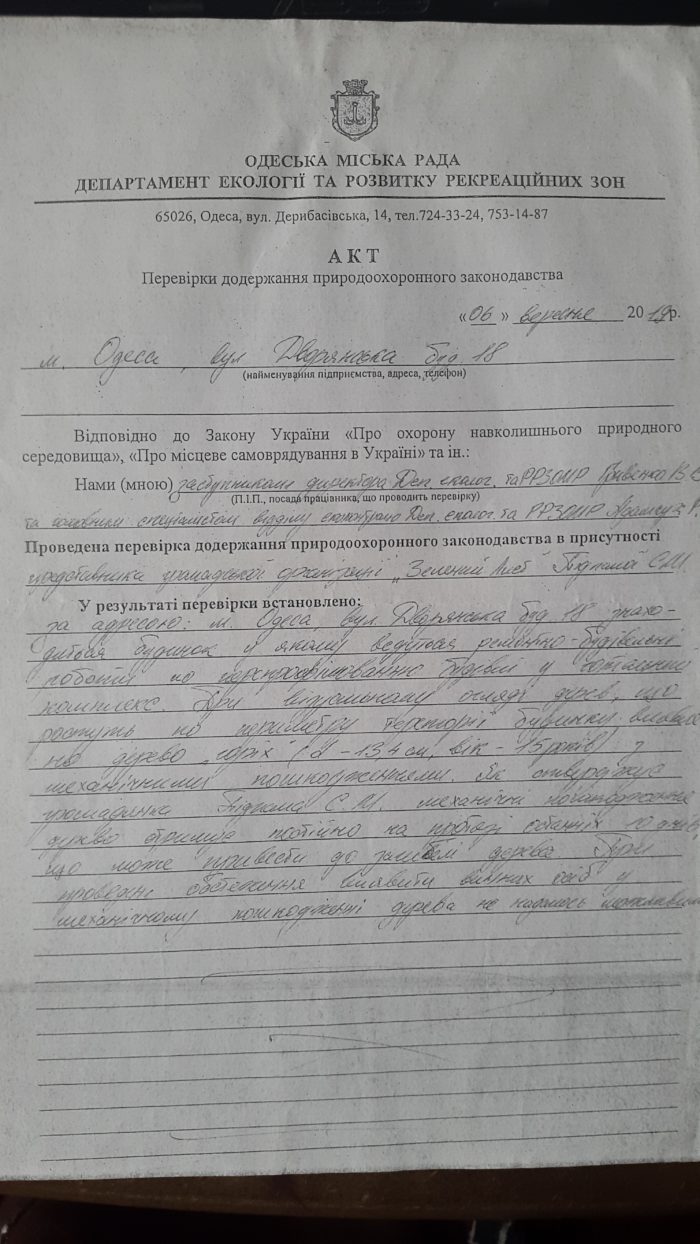 ОДЕСЬКА МІСЬКА РАДА
ДЕПАРТАМЕНТ ЕКОЛОГІЇ ТА РОЗВИТКУ РЕКРЕАЦІЙНИХ ЗОН
65026, Одеса, вул. Дерибасівська, 14, тел.724-33-24, 753-14-87
АКТ
Перевірки додержання природоохоронного законодавства
«06» вересня 2019р.
м. Одеса, вул Дворянська буд 18
(найменування підприємства, адреса, телефон)
Відповідно до Закону України «Про охорону навколишнього природного
середовища», «Про місцеве самоврядування в Україні» та ін.:
Нами (мною) заступником директора Деп. еколог. та РРЗОМР
(П.І.П., посада працівника, що проводить перевірку)
та головним спеціалістом відділу Деп. еколог. та РРЗОМР
Проведена перевірка додержання природоохоронного законодавства в присутності
представника громадської організації „Зелений Лист" С.М.
У результаті перевірки встановлено:
за адресою: м. Одеса, вул. Дворянська буд. 18 знахо-
диться будинок у якому ведуться ремонтно-будівельні
роботи по перепрофілюванню будівлі у готельний
комплекс. При візуальному огляді дерев, що
ростуть по периметру території будинку виявле-
но дерево „горіх" (d-13,4 см, вік - 15 років) з
механічними пошкодженнями. Як стверджує
громадянка С.М. механічні пошкодження
дерево отримує постійно на протязі останніх 10 днів,
що може привести до загибелі дерева. При
проведені обстеження виявити винних осіб у
механічному пошкодженні дерева не надалось можливим